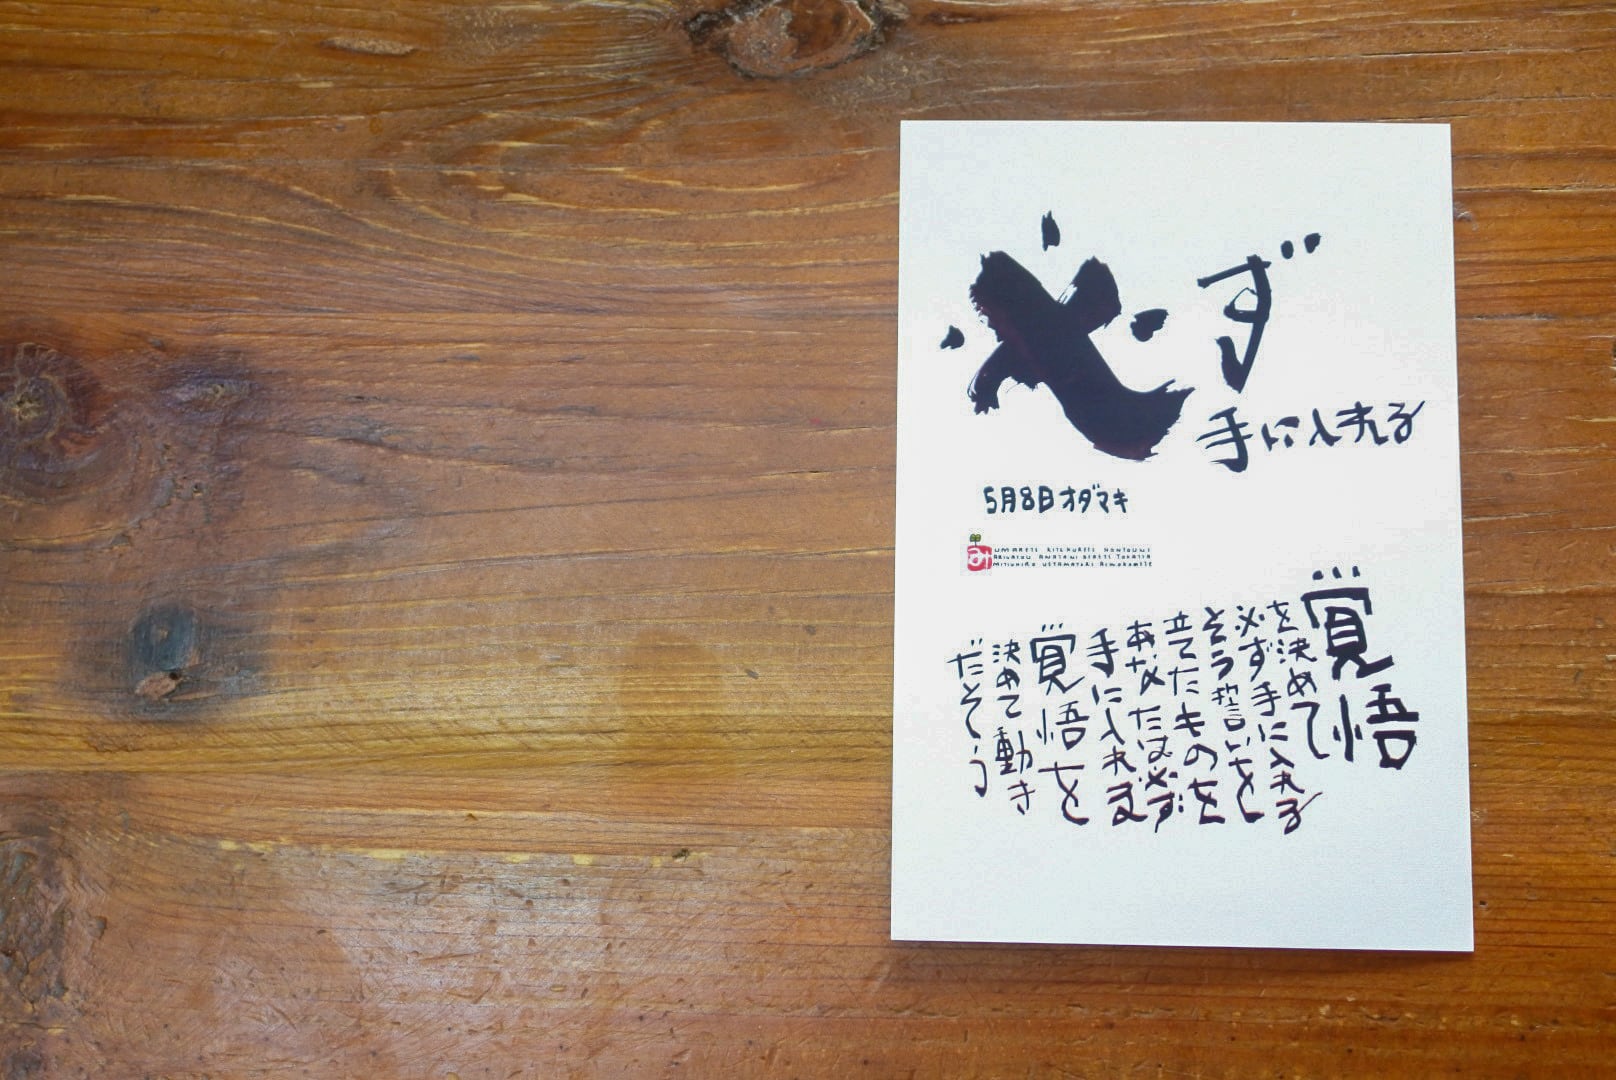 必ず
手に入れる
5月8日オダマキ
み
UMARETE KITEKURETE HONTOUNI
ARIGATOU ANATANI DEAETE YOKATTA
覚悟
を決めて
必ず手に入れる
そう誓いを
立てたものを
あなたは必ず
手に入れる
覚悟を
決めて動き
だそう